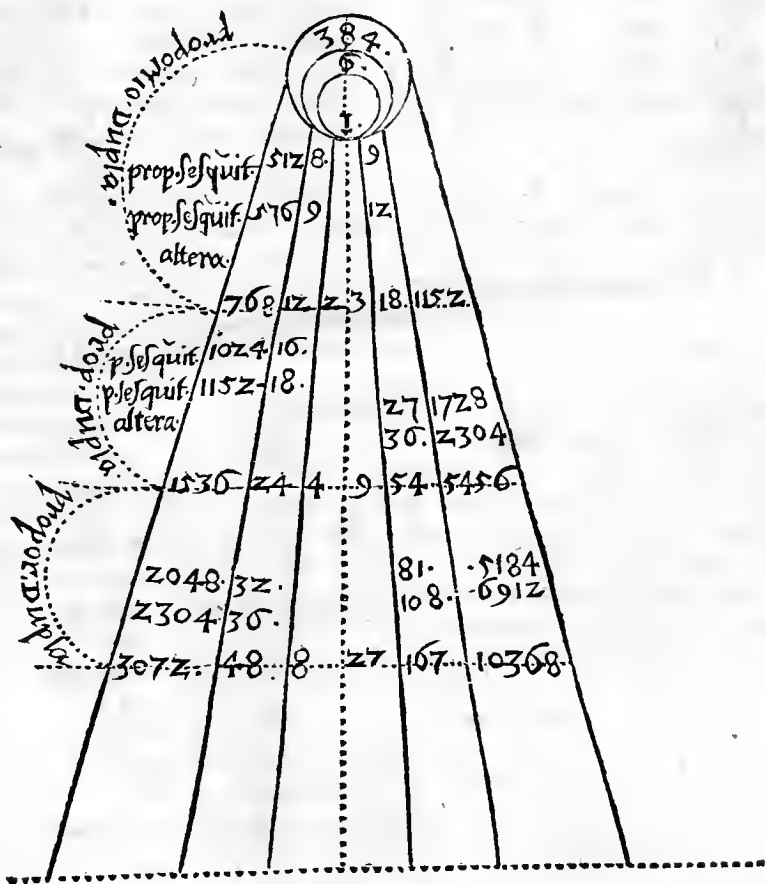 384.
6.
1.
proportio dupla.
prop. sesquit. 512 8. 9
prop. sesquit. 576 9 12
altera.
768 12 2 3 18. 1152.
propor. dupla
p. sesquit. 1024. 16.
p. sesquit. 1152 18.
altera.
27 1728
36. 2304
1536 24 4 9 54 5456
propor. dupla
2048 32. 81. 5184
2304 36. 108. 6912
3072. 48 8 27 167 10368